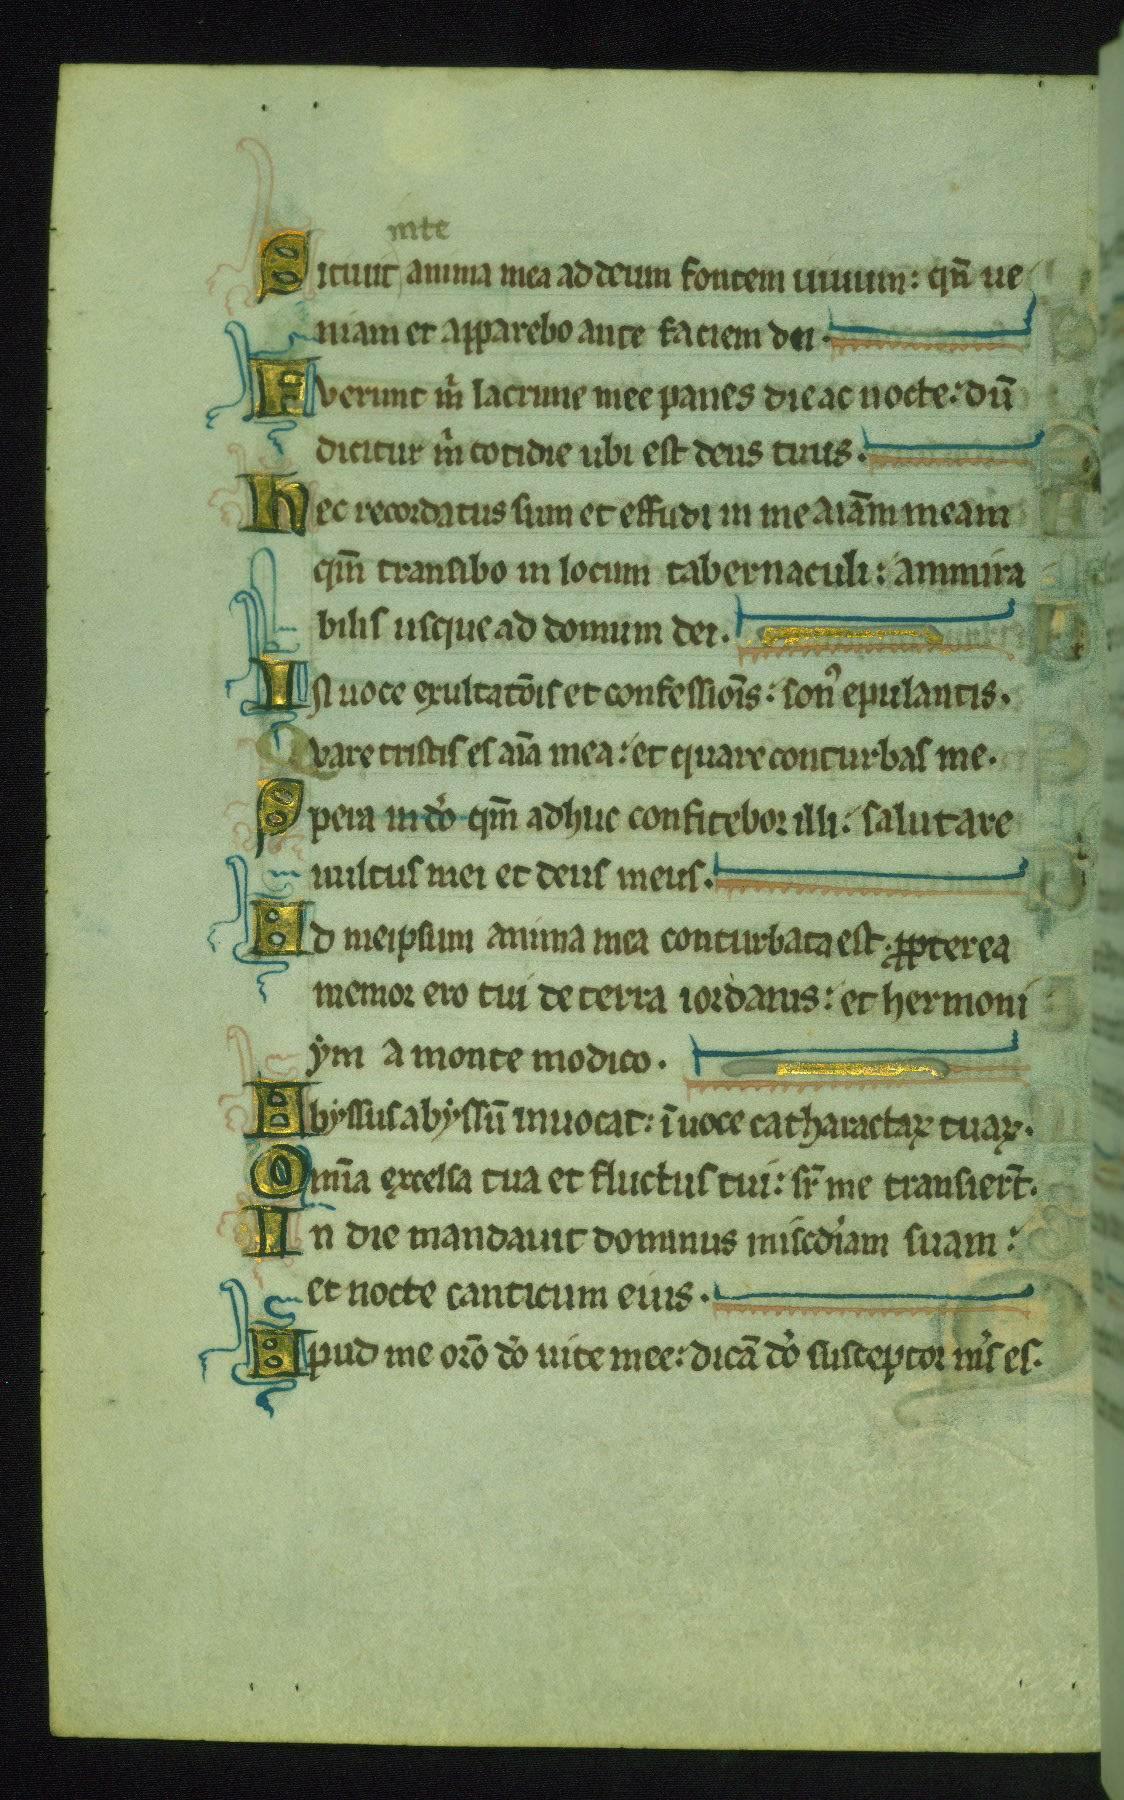 inte
Sitiuit anima mea ad deum fontem uiuum: qn̄ ue
niam et apparebo ante faciem dei.
Fverunt m̄ lacrime mee panes die ac nocte: dū
dicitur m̄ cotidie ubi est deus tuus.
Hec recordatus sum et effudi in me aīam meam
qm̄ transibo in locum tabernaculi: ammira
bilis usque ad domum dei.
In uoce exultatōis et confessiōis: son᾽ epulantis.
Qvare tristis es aīa mea: et quare conturbas me.
Spera in dō qm̄ adhuc confitebor illi: salutare
uultus mei et deus meus.
Ad meipsum anima mea conturbata est. ꝓpterea
memor ero tui de terra iordanis: et hermoni
ẏm a monte modico.
Abẏssus abẏssū inuocat: ī uoce catharactaꝝ tuaꝝ.
Omīa excelsa tua et fluctus tui: sr̄ me transier̄t.
In die mandauit dominus misc̄diam suam:
et nocte canticum eius.
Apud me orō dō uite mee: dicā dō susceptor m̄s es.